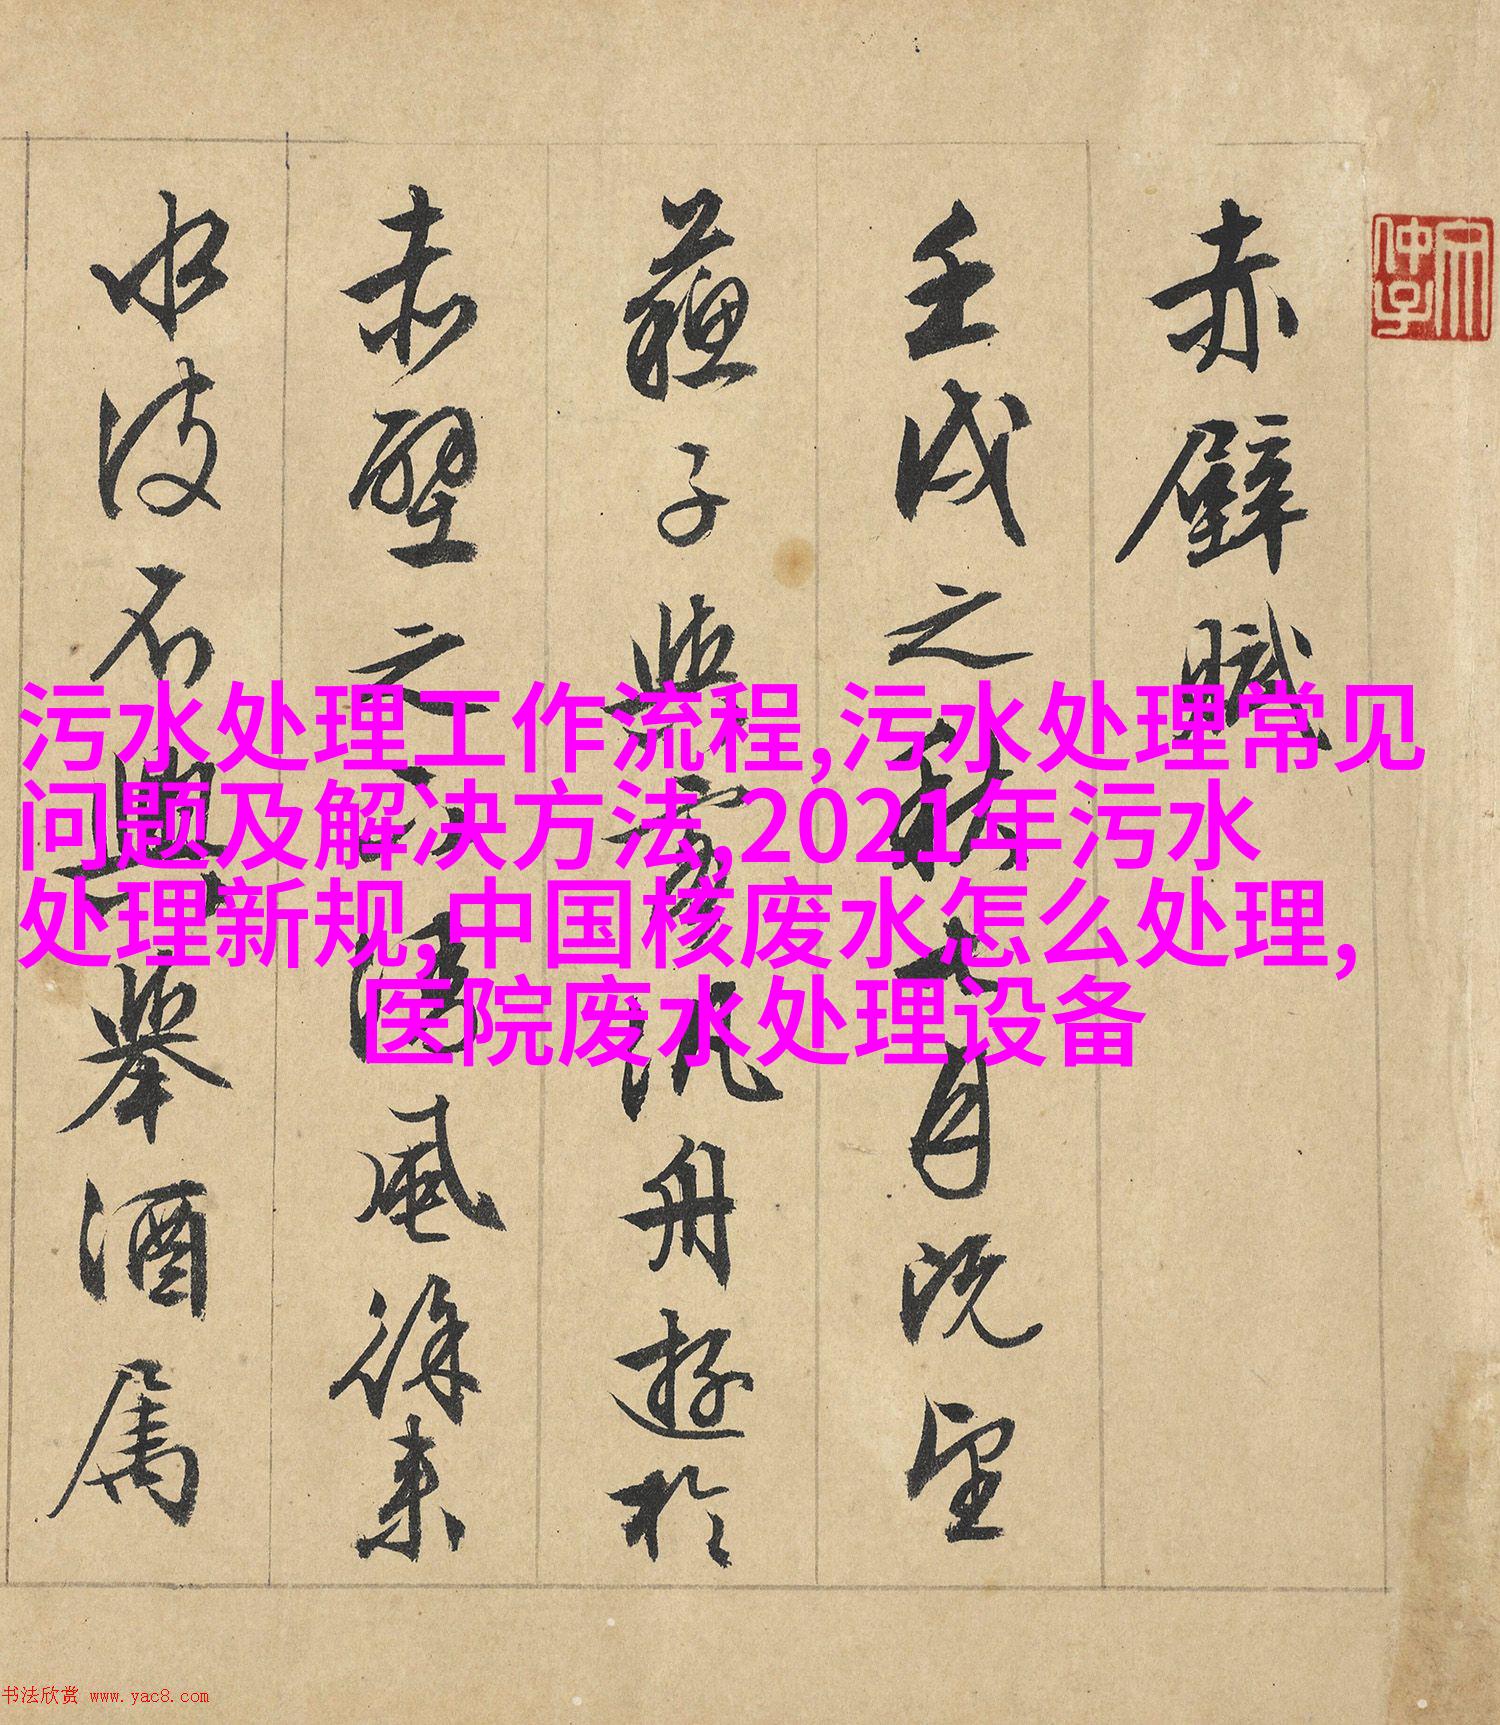 赤壁賦
壬戌之秋七月既望
蘇子與客泛舟遊於
赤壁之下清風徐来
水波不興舉酒屬
污水处理工作流程,污水处理常见
问题及解决方法,2021年污水
处理新规,中国核废水怎么处理,
医院废水处理设备
书法欣赏 www.yac8.com